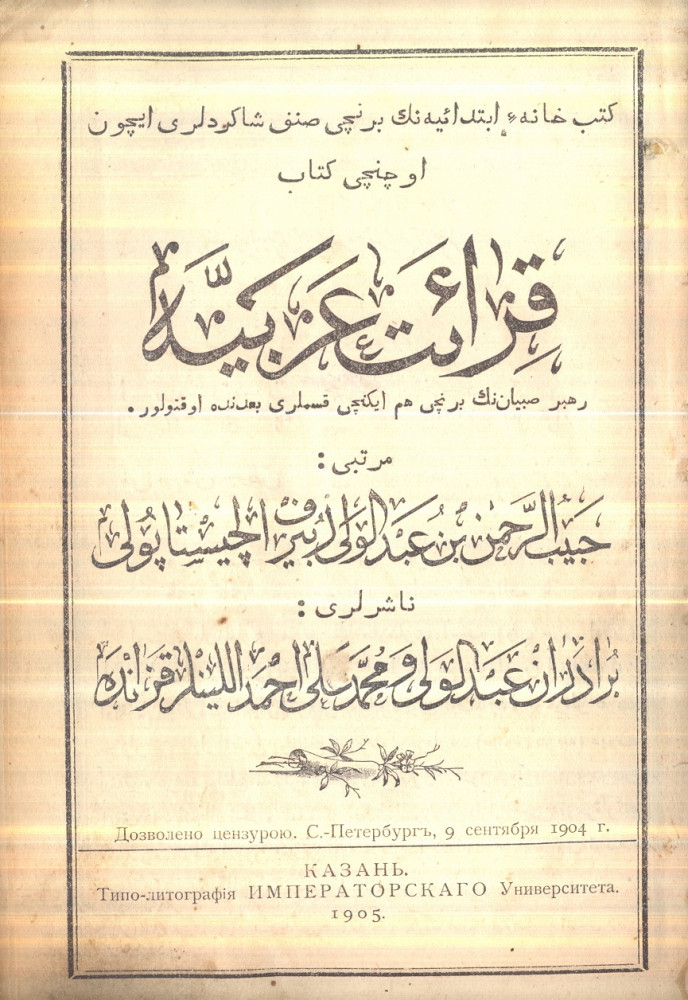 كتب خانهٔ ابتدائيه‌نك برنچی صنف شاكردلری ایچون
اوچنچی كتاب
قِرائتِ عَرَبيَّه
رهبر صبيان‌نك برنچی هم ایكنچی قسملری بعدنده اوقتولور.
مرتبی:
حَبيبُ الرَّحمن بنُ عَبدالوَلی الچيستاپُولی
ناشرلری:
بُرادَران عَبدالوَلی و مُحمَّد علی احمداللينلر قزاندَه
Дозволено цензурою. С.-Петербургъ, 9 сентября 1904 г.
КАЗАНЬ.
Типо-литографія ИМПЕРАТОРСКАГО Университета.
1905.